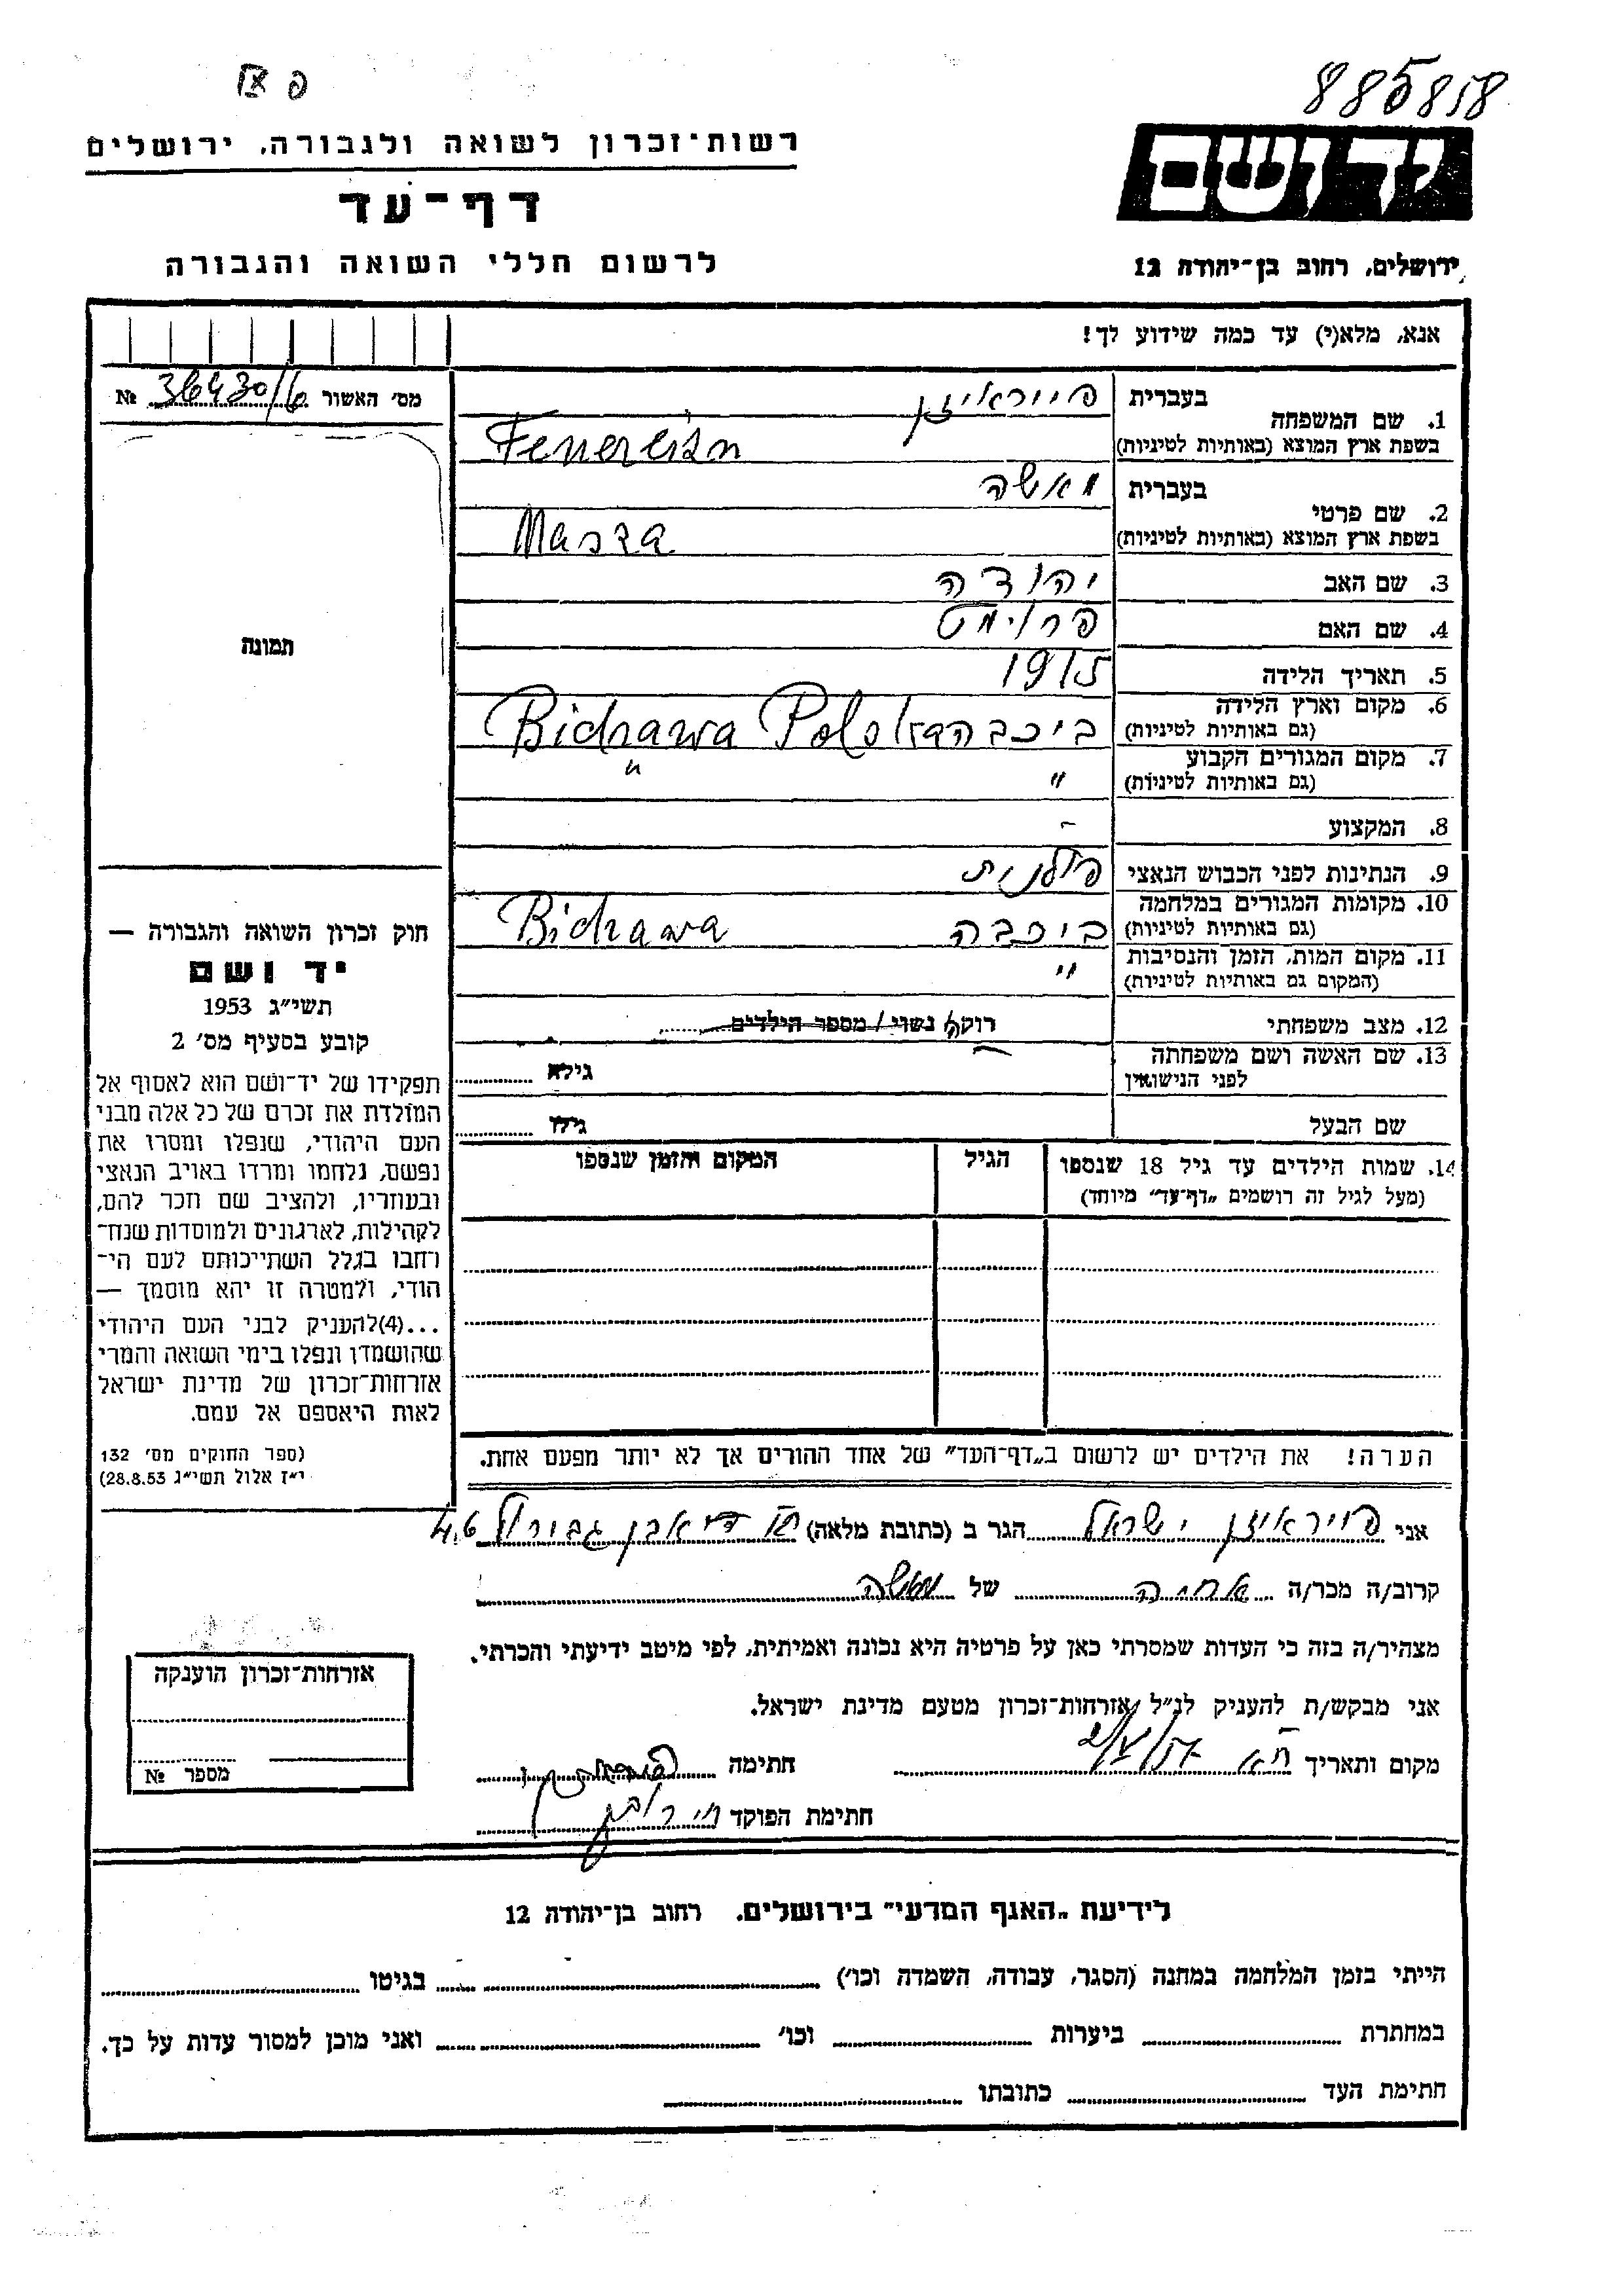 885818
פ XI
רשות-זכרון לשואה ולגבורה, ירושלים
דף-עד
לרשום חללי השואה והגבורה
ידושם
ירושלים, רחוב בן-יהודה 12
אנא, מלא(י) עד כמה שידוע לך!
מס׳ האשור № 36430/6
1. שם המשפחה
בעברית פייראיזן
בשפת ארץ המוצא (באותיות לטיניות) Feuereisn
2. שם פרטי
בעברית מאשה
בשפת ארץ המוצא (באותיות לטיניות) Masza
3. שם האב יהודה
4. שם האם פרומט
5. תאריך הלידה 1915
6. מקום וארץ הלידה
(גם באותיות לטיניות) ביכבה Bichawa Polska
7. מקום המגורים הקבוע
(גם באותיות לטיניות) " "
8. המקצוע -
9. הנתינות לפני הכבוש הנאצי פולנית
10. מקומות המגורים במלחמה
(גם באותיות לטיניות) ביכבה Bichawa
11. מקום המות, הזמן והנסיבות
(המקום גם באותיות לטיניות) "
12. מצב משפחתי רוקה / נשוי / מספר הילדים
13. שם האשה ושם משפחתה
לפני הנישואין
גילה
שם הבעל גילו
14. שמות הילדים עד גיל 18 שנספו
(מעל לגיל זה רושמים „דף-עד״ מיוחד)
הגיל
המקום והזמן שנספו
תמונה
חוק זכרון השואה והגבורה —
יד ושם
תשי״ג 1953
קובע בסעיף מס׳ 2
תפקידו של יד-ושם הוא לאסוף אל
המולדת את זכרם של כל אלה מבני
העם היהודי, שנפלו ומסרו את
נפשם, נלחמו ומרדו באויב הנאצי
ובעוזריו, ולהציב שם וזכר להם,
לקהילות, לארגונים ולמוסדות שנח-
רחבו בגלל השתייכותם לעם הי-
הודי, ולמטרה זו יהא מוסמך —
...(4)להעניק לבני העם היהודי
שהושמדו ונפלו בימי השואה והמרי
אזרחות-זכרון של מדינת ישראל
לאות היאספם אל עמם.
(ספר החוקים מס׳ 132
י״ז אלול תשי״ג 28.8.53)
הערה! את הילדים יש לרשום ב„דף-העד״ של אחד ההורים אך לא יותר מפעם אחת.
אני פויראיזן ישראל הגר ב (כתובת מלאה) אבן גבירול 46
קרוב/ה מכר/ה של מאשה
מצהיר/ה בזה כי העדות שמסרתי כאן על פרטיה היא נכונה ואמיתית, לפי מיטב ידיעתי והכרתי.
אני מבקש/ת להעניק לנ״ל אזרחות-זכרון מטעם מדינת ישראל.
מקום ותאריך חתימה
חתימת הפוקד
אזרחות-זכרון הוענקה
מספר №
לידיעת „האגף המדעי״ בירושלים, רחוב בן-יהודה 12
הייתי בזמן המלחמה במחנה (הסגר, עבודה, השמדה וכו׳) בגיטו
במחתרת ביערות וכו׳ ואני מוכן למסור עדות על כך.
חתימת העד כתובתו